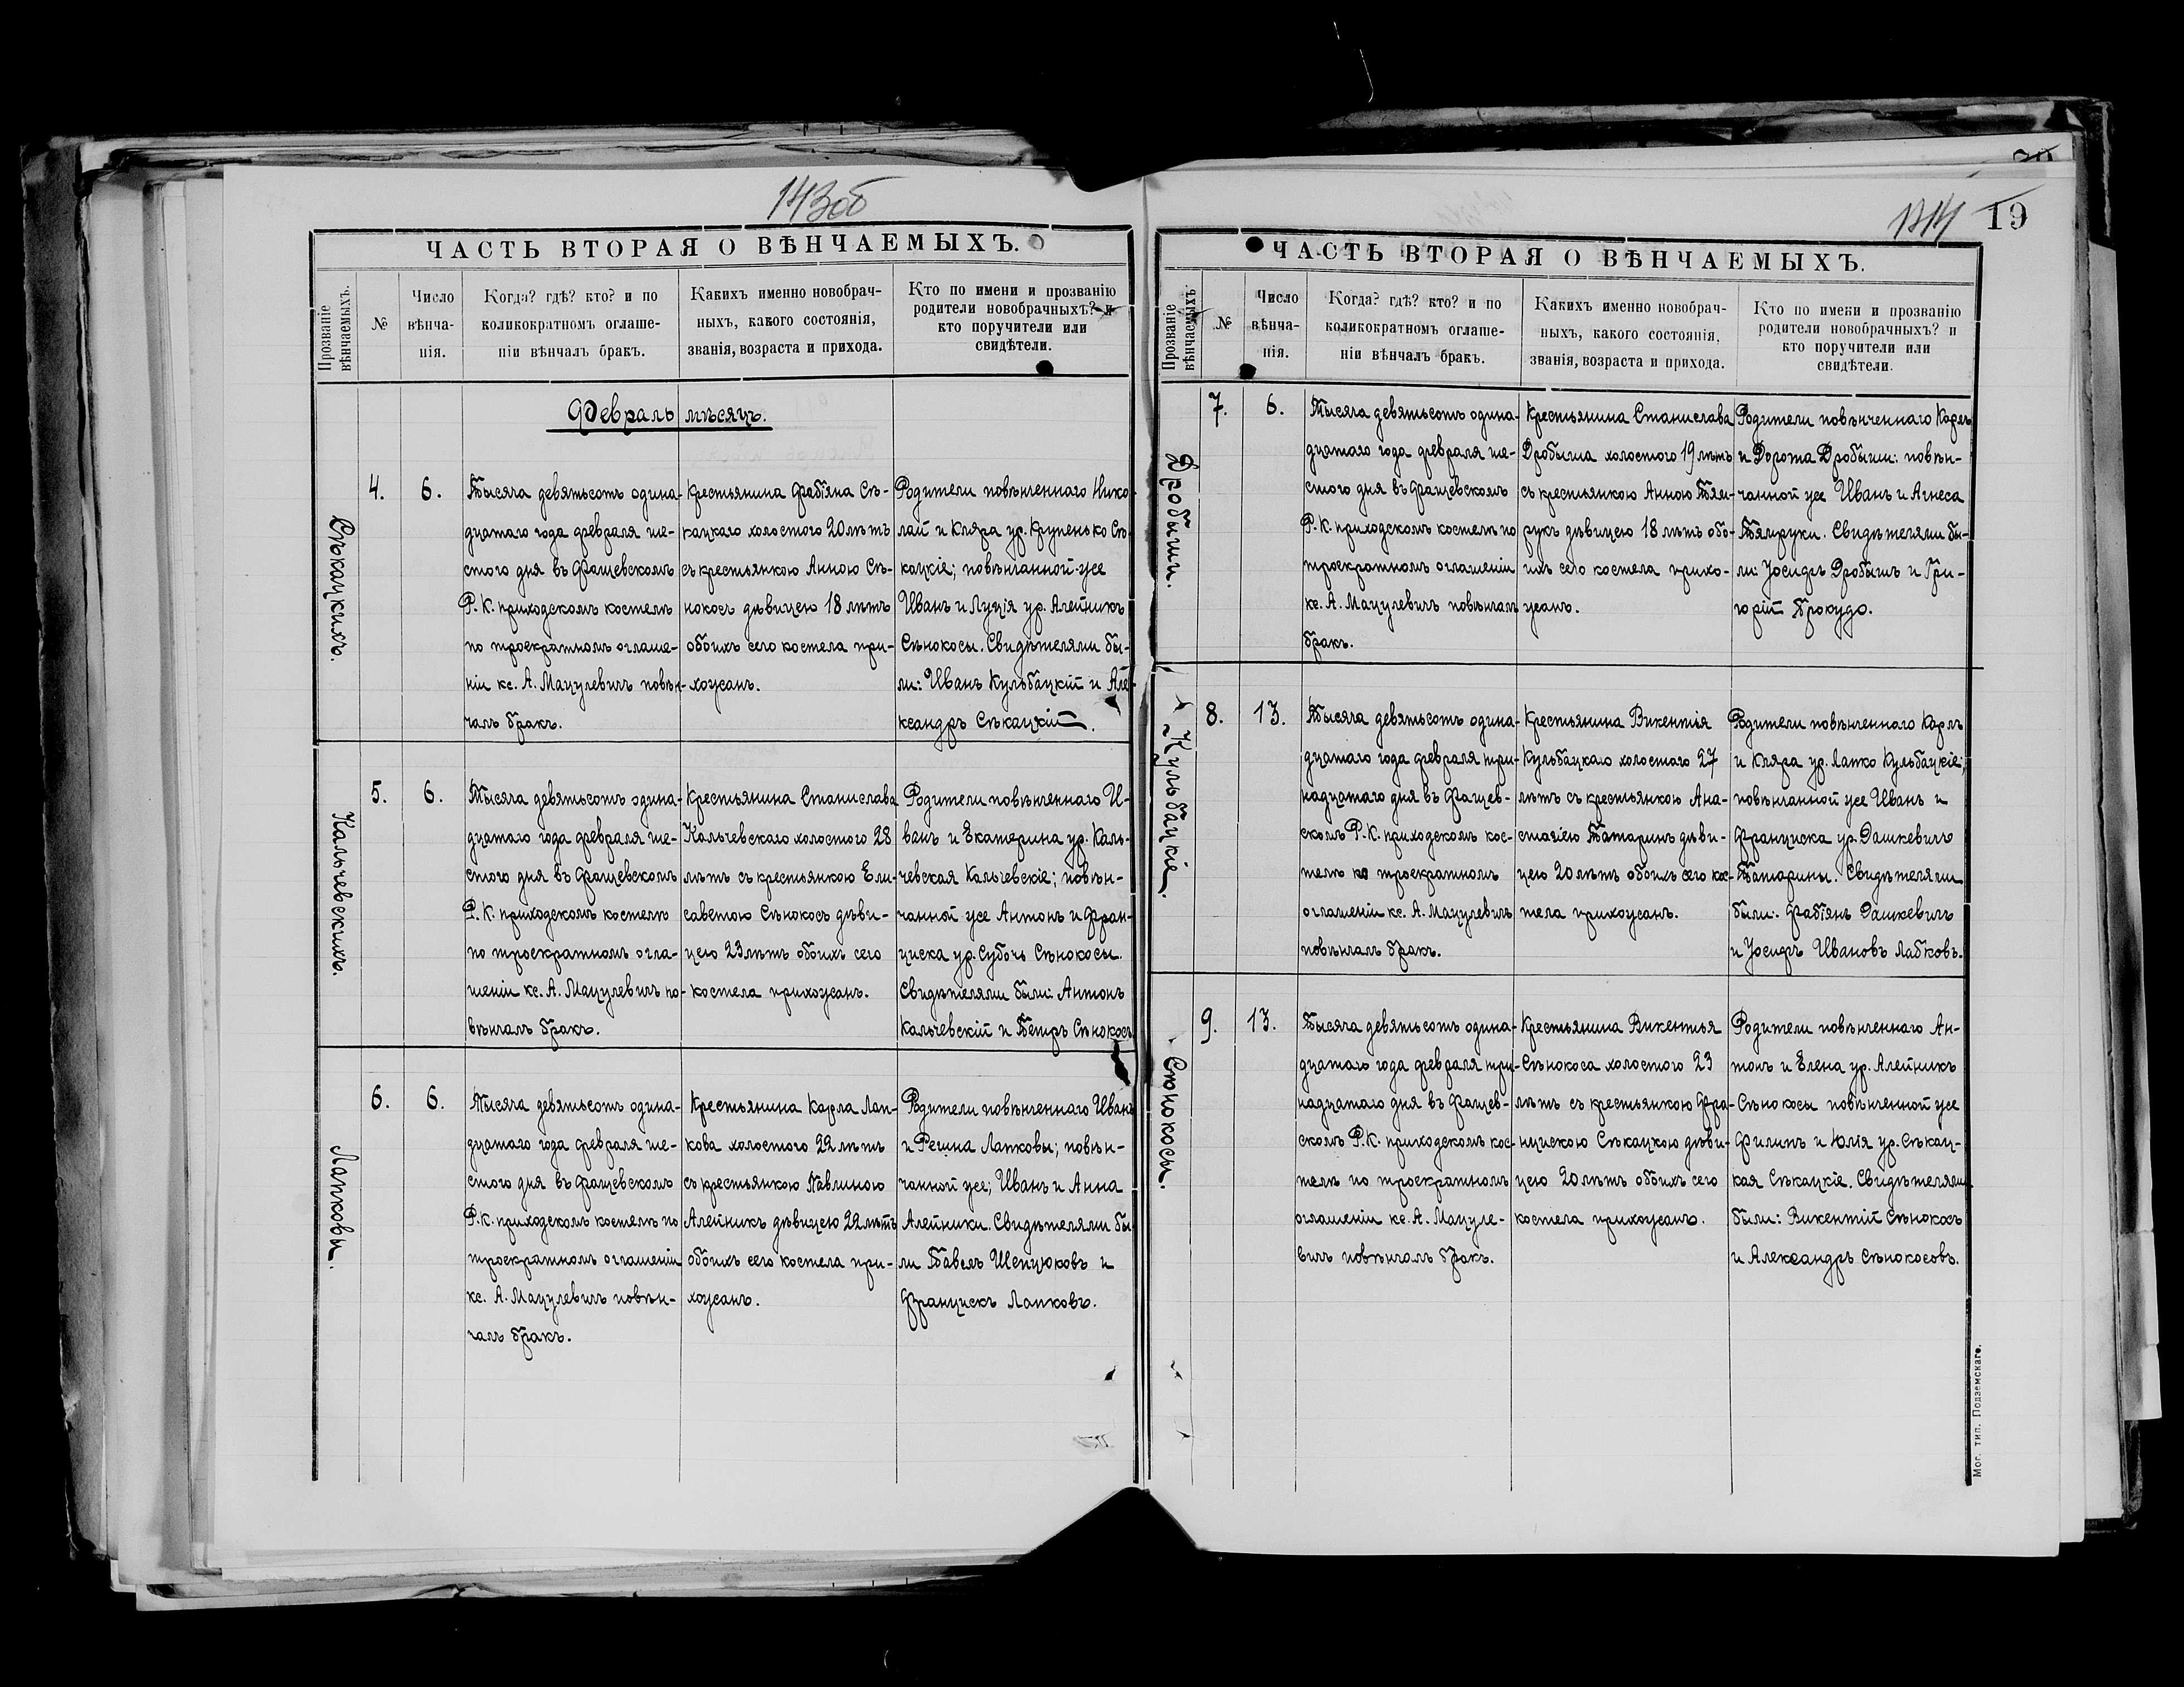 143об
ЧАСТЬ ВТОРАЯ О ВѢНЧАЕМЫХЪ.
Прозваніе вѣнчаемыхъ.
№
Число
вѣнча-
нія.
Когда? гдѣ? кто? и по
коликократномъ оглаше-
ніи вѣнчалъ бракъ.
Какихъ именно новобрач-
ныхъ, какого состоянія,
званія, возраста и прихода.
Кто по имени и прозванію
родители новобрачныхъ? и
кто поручители или
свидѣтели.
Февраль мѣсяцъ.
Сѣкацкихъ.
4.
6.
Тысяча девятьсотъ одина-
дцатаго года февраля ше-
стого дня въ Фащевскомъ
Р.К. приходскомъ костелѣ
по троекратномъ оглаше-
ніи кс. А. Мацулевичъ повѣн-
чалъ бракъ.
Крестьянина Фабіяна Сѣ-
кацкаго холостого 20 лѣтъ
съ крестьянкою Анною Сѣ-
нокосъ дѣвицею 18 лѣтъ
обоихъ сего костела при-
хожанъ.
Родители повѣнченнаго Нико-
лай и Кляра ур. Крупенько Сѣ-
кацкіе; повѣнчанной же
Иванъ и Луція ур. Алейникъ
Сѣнокосы. Свидѣтелями бы-
ли: Иванъ Кульбацкій и Але-
ксандръ Сѣкацкій.
Кальчевскихъ.
5.
6.
Тысяча девятьсотъ одина-
дцатаго года февраля ше-
стого дня въ Фащевскомъ
Р.К. приходскомъ костелѣ
по троекратномъ огла-
шеніи кс. А. Мацулевичъ по-
вѣнчалъ бракъ.
Крестьянина Станислава
Кальчевскаго холостого 28
лѣтъ съ крестьянкою Ели-
саветою Сѣнокосъ дѣви-
цею 23 лѣтъ обоихъ сего
костела прихожанъ.
Родители повѣнченнаго И-
ванъ и Екатерина ур. Каль-
чевская Кальчевскіе; повѣн-
чанной же Антонъ и Фран-
циска ур. Субочь Сѣнокосы.
Свидѣтелями были: Антонъ
Кальчевскій и Петръ Сѣнокосъ
Лапковы.
6.
6.
Тысяча девятьсотъ одина-
дцатаго года февраля ше-
стого дня въ Фащевскомъ
Р.К. приходскомъ костелѣ по
троекратномъ оглашеніи
кс. А. Мацулевичъ повѣн-
чалъ бракъ.
Крестьянина Карла Лап-
кова холостого 22 лѣтъ
съ крестьянкою Павлиною
Алейникъ дѣвицею 22 лѣтъ
обоихъ сего костела при-
хожанъ.
Родители повѣнченнаго Иванъ
и Регина Лапковы; повѣн-
чанной же; Иванъ и Анна
Алейники. Свидѣтелями бы-
ли Павелъ Шепцюковъ и
Францискъ Лапковъ.
144
19
ЧАСТЬ ВТОРАЯ О ВѢНЧАЕМЫХЪ.
Прозваніе вѣнчаемыхъ
№
Число
вѣнча-
нія.
Когда? гдѣ? кто? и по
коликократномъ оглаше-
ніи вѣнчалъ бракъ.
Какихъ именно новобрач-
ныхъ, какого состоянія,
званія, возраста и прихода.
Кто по имени и прозванію
родители новобрачныхъ? и
кто поручители или
свидѣтели.
Дробыши.
7.
6.
Тысяча девятьсотъ одина-
дцатаго года февраля ше-
стого дня въ Фащевскомъ
Р.К. приходскомъ костелѣ по
троекратномъ оглашеніи
кс. А. Мацулевичъ повѣнчалъ
бракъ.
Крестьянина Станислава
Дробыша холостого 19 лѣтъ
съ крестьянкою Анною Пям-
рукъ дѣвицею 18 лѣтъ обо-
ихъ сего костела прихо-
жанъ.
Родители повѣнченнаго Карлъ
и Дорота Дробыши: повѣн-
чанной же Иванъ и Агнеса
Пямруки. Свидѣтелями бы-
ли: Іосифъ Дробышъ и Гри-
горій Прокудо.
Кульбацкіе.
8.
13.
Тысяча девятьсотъ одина-
дцатаго года февраля три-
надцатаго дня въ Фащев-
скомъ Р.К. приходскомъ кос-
телѣ по троекратномъ
оглашеніи кс. А. Мацулевичъ
повѣнчалъ бракъ.
Крестьянина Викентія
Кульбацкаго холостаго 27
лѣтъ съ крестьянкою Ана-
стазіею Татаринъ дѣви-
цею 20 лѣтъ обоихъ сего кос-
тела прихожанъ.
Родители повѣнченнаго Карлъ
и Кляра ур. Лапко Кульбацкіе;
повѣнчанной же Иванъ и
Франциска ур. Дашкевичъ
Татарины. Свидѣтелями
были: Фабіянъ Дашкевичъ
и Іосифъ Ивановъ Лабковъ.
Сѣнокосы.
9.
13.
Тысяча девятьсотъ одина-
дцатаго года февраля три-
надцатаго дня въ Фащев-
скомъ Р.К. приходскомъ кос-
телѣ по троекратномъ
оглашеніи кс. А. Мацуле-
вичъ повѣнчалъ бракъ.
Крестьянина Викентья
Сѣнокоса холостого 23
лѣтъ съ крестьянкою Фра-
нцискою Сѣкацкою дѣви-
цею 20 лѣтъ обоихъ сего
костела прихожанъ.
Родители повѣнченнаго Ан-
тонъ и Елена ур. Алейникъ
Сѣнокосы повѣнченной же
Филипъ и Юлія ур. Сѣкац-
кая Сѣкацкіе. Свидѣтелями
были: Викентій Сѣнокосъ
и Александръ Сѣнокосовъ.
Мог. тип. Подземскаго.